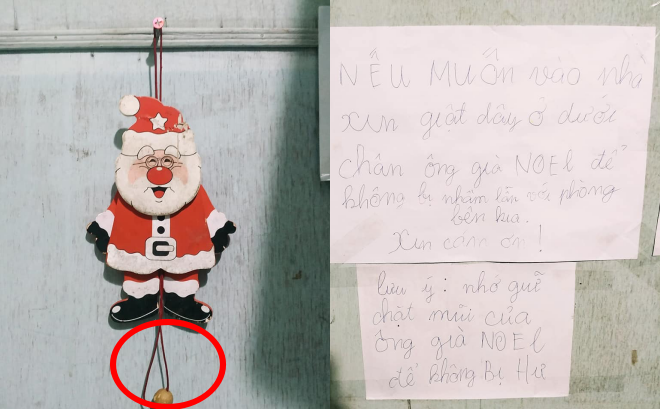 NẾU MUỐN vào nhà
xin giật dây ở dưới
chân ông già NOEl để
không bị nhầm lẫn với phòng
bên kia.
Xin cám ơn!
lưu ý: nhớ giữ
chặt mũi của
ông già NOEl
để không Bị Hư